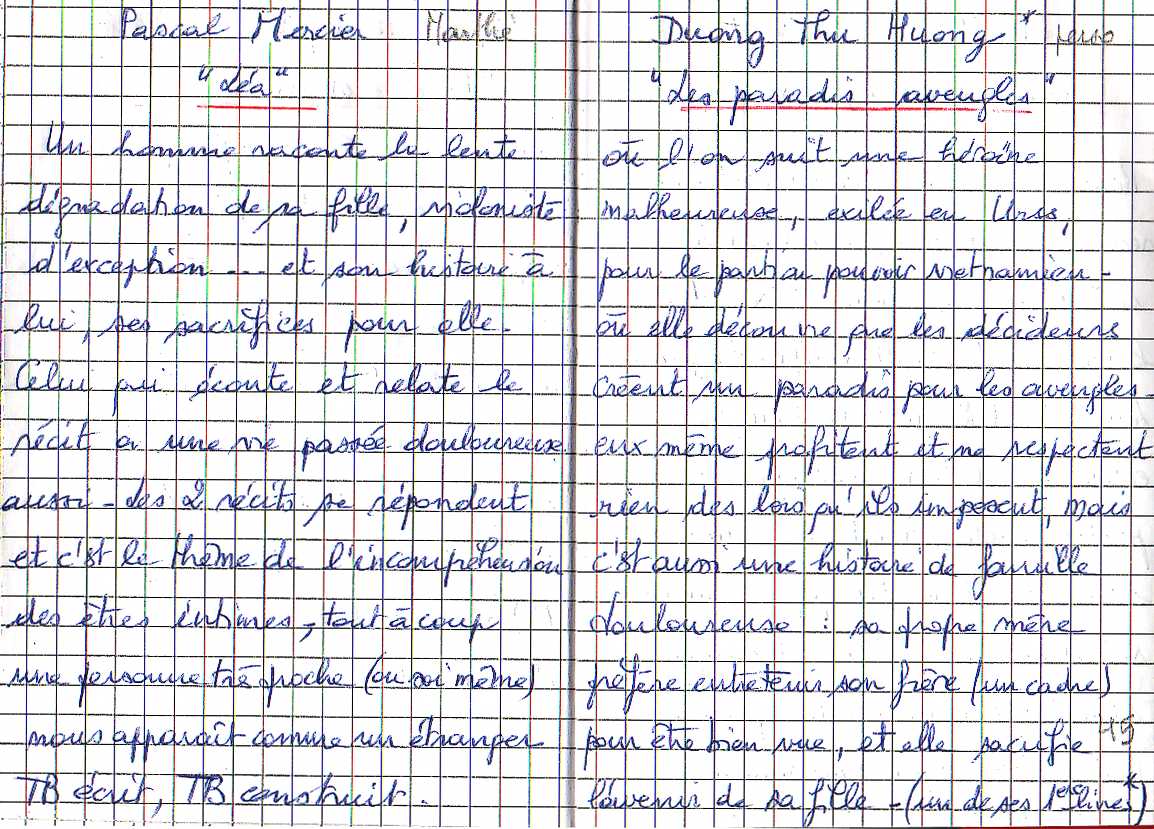 Pascal Mercier
"Léa"
Un homme raconte la lente
dégradation de sa fille, violoniste
d'exception ... et son histoire à
lui, ses sacrifices pour elle.
Celui qui écoute et relate le
récit a une vie passée douloureuse
aussi - les 2 récits se répondent
et c'st le thème de l'incompréhension
des êtres intimes, tout à coup
une personne très proche (ou soi même)
nous apparaît comme un étranger
TB écrit, TB construit.
Duong Thu Huong * perso
"Les paradis aveugles"
où l'on suit une héroïne
malheureuse, exilée en Urss,
pour le parti au pouvoir vietnamien -
où elle découvre que les décideurs
créent un paradis pour les aveugles -
eux même profitent et ne respectent
rien des lois qu'ils imposent, mais
c'st aussi une histoire de famille
douloureuse : sa propre mère
préfère entretenir son frère (un cadre)
pour être bien vue, et elle sacrifie
l'avenir de sa fille - (un de ses 1ers livres*)
45